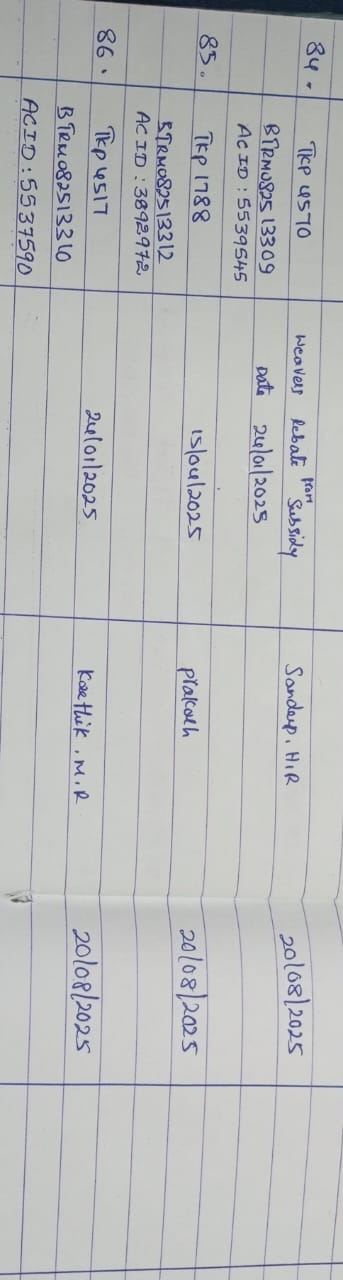 84. TKP 4570
BTRM082513309
ACID: 5539545
Weavers Rebate from Subsidy
Date 24/01/2025
Sandeep. H.R
20/08/2025
85. TKP 1788
BTRM082513312
ACID: 3892972
15/04/2025
Prakash
20/08/2025
86. TKP 4517
BTRM082513310
ACID: 5537590
24/01/2025
Karthik. M. R
20/08/2025